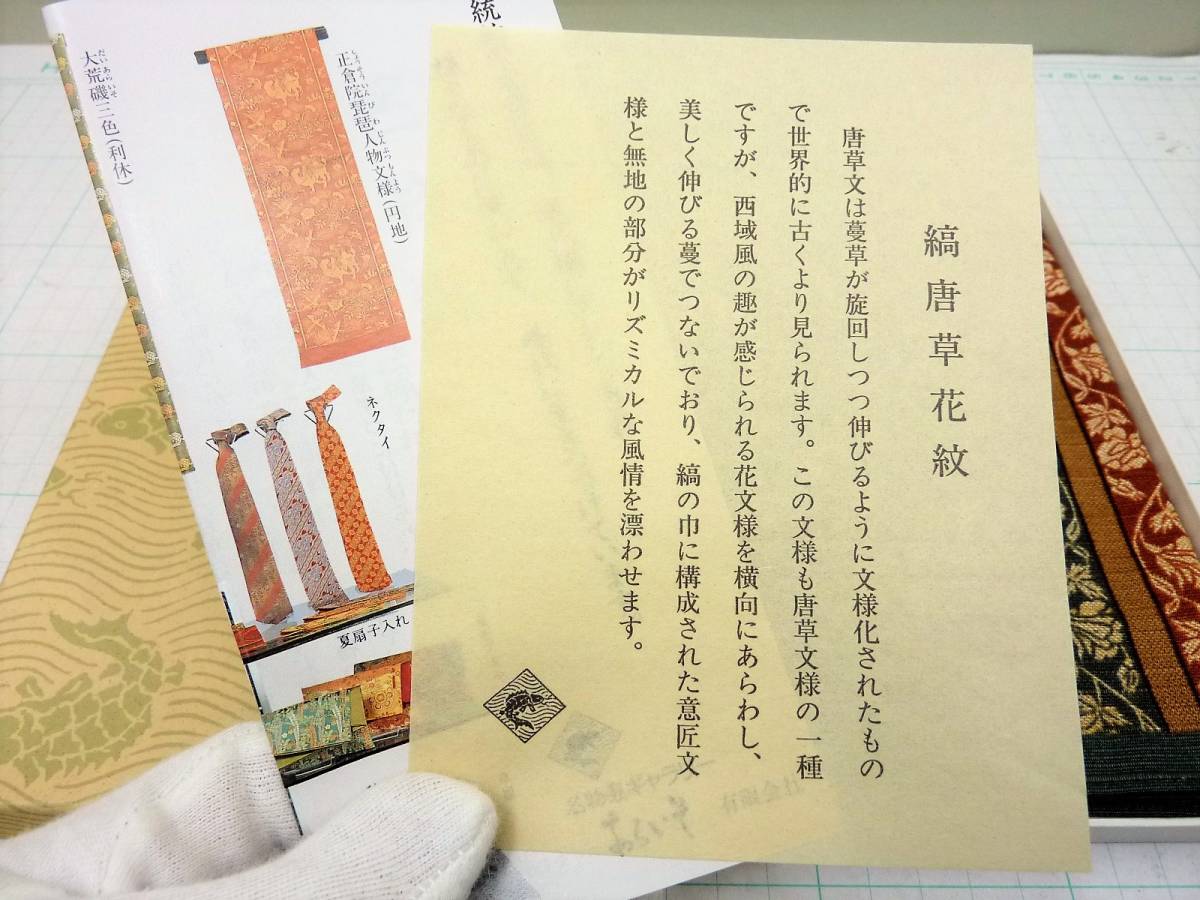 縞唐草花紋
唐草文は蔓草が旋回しつつ伸びるように文様化されたもの
で世界的に古くより見られます。この文様も唐草文様の一種
ですが、西域風の趣が感じられる花文様を横向にあらわし、
美しく伸びる蔓でつないでおり、縞の巾に構成された意匠文
様と無地の部分がリズミカルな風情を漂わせます。
統
正倉院琵琶人物文様(円地)
しょうそういんびわじんぶつもんよう
大荒磯三色(利休)
だいあらいそ
ネクタイ
夏扇子入れ